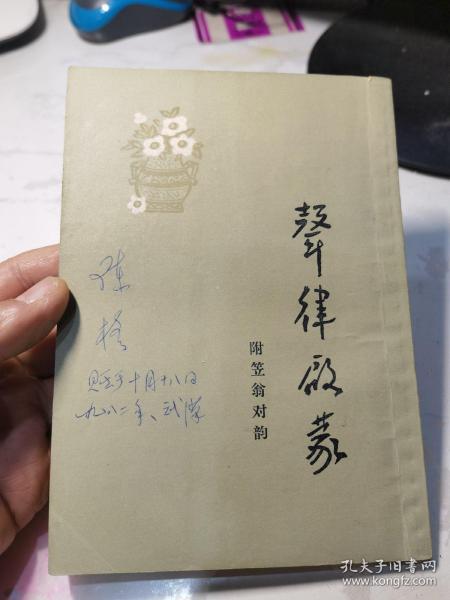 聲律啟蒙
附笠翁对韵
购于十月十八日
九八二年、武漢
孔夫子旧书网
www.kongfz.com